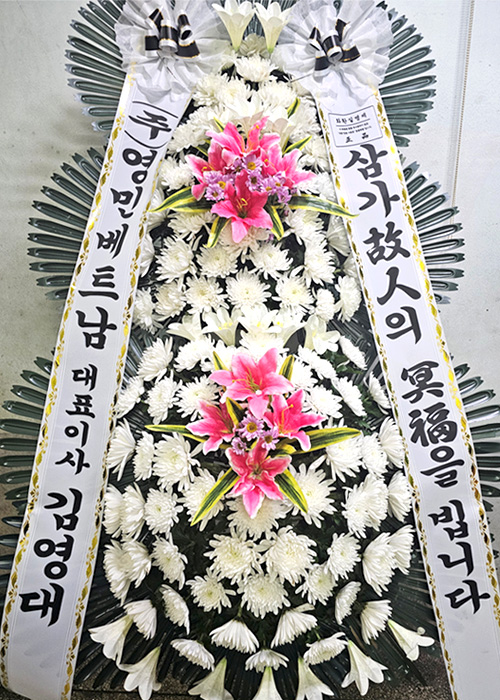 (주)영민베트남 대표이사 김영대
삼가故人의 冥福을 빕니다